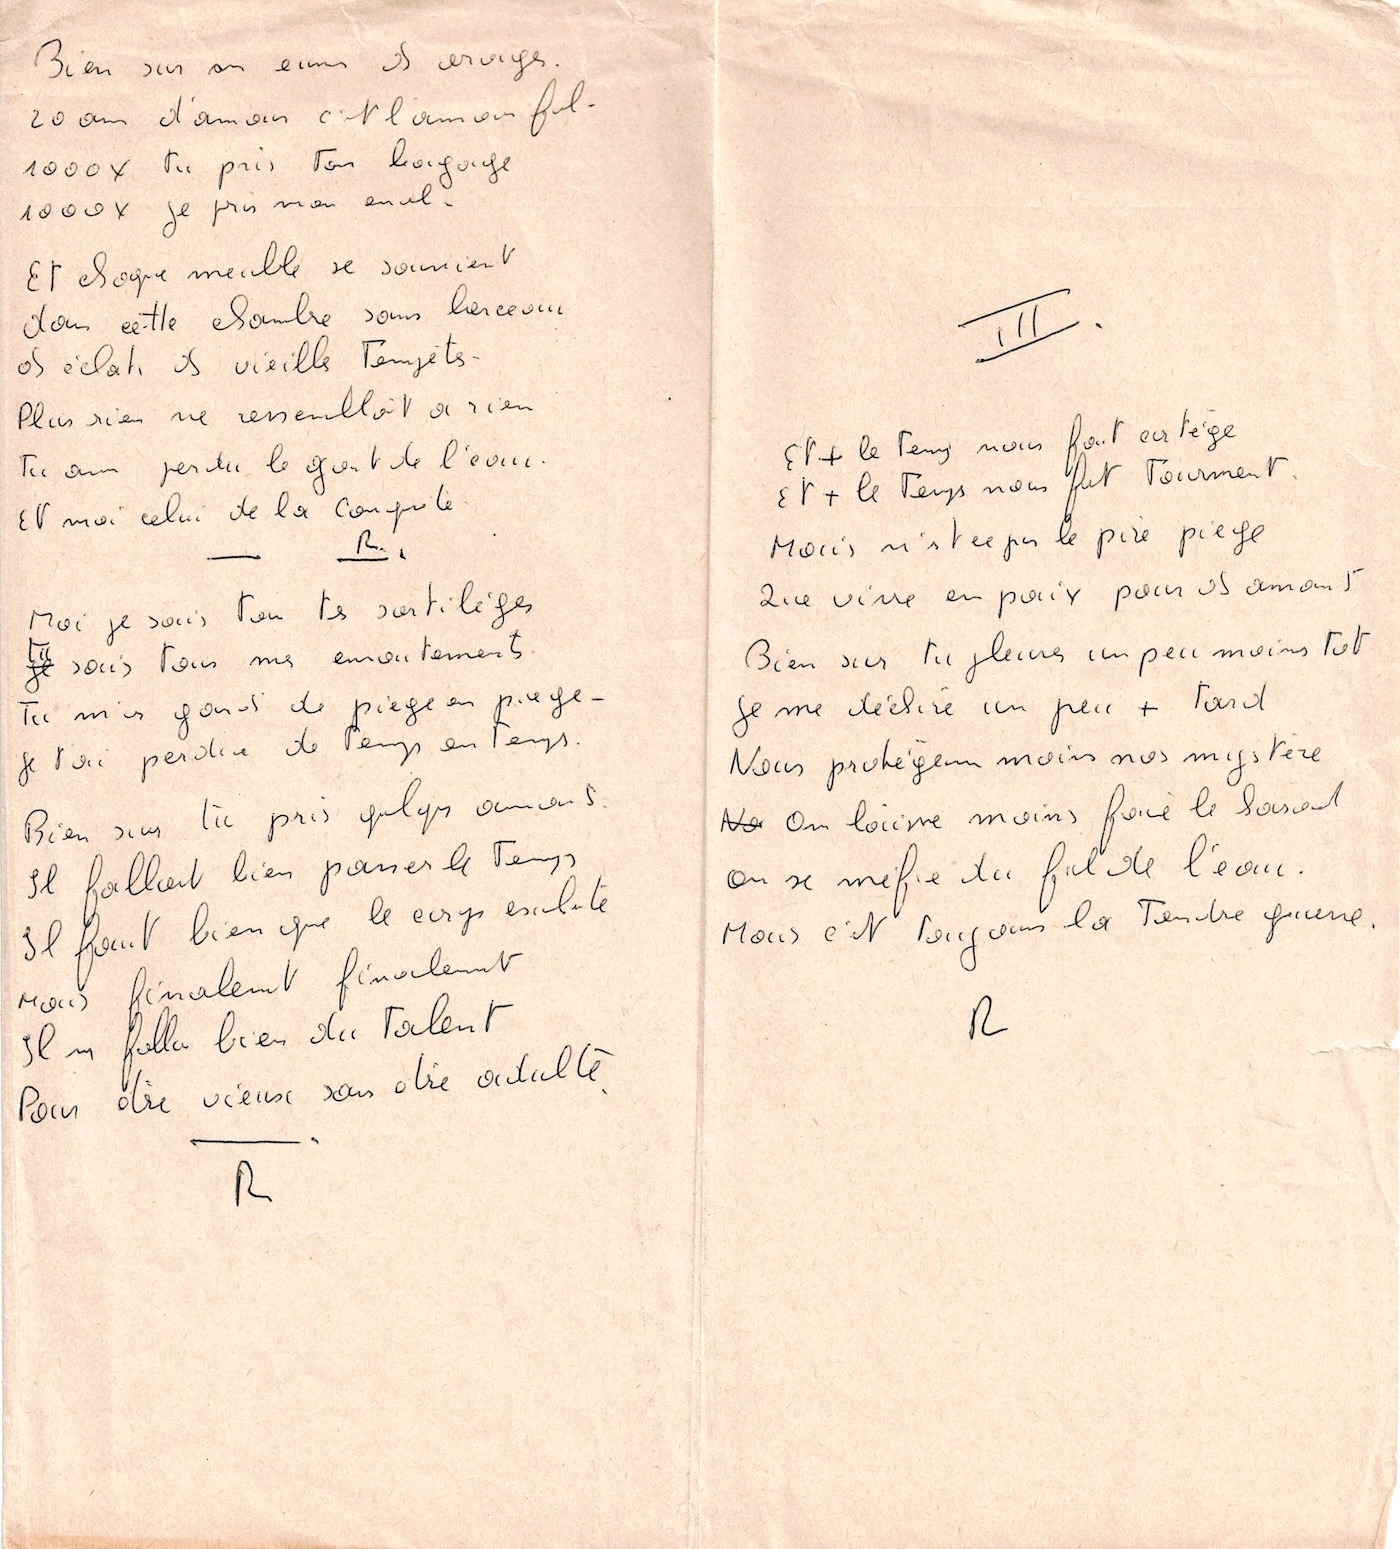 Bien sur on eume ds orages.
20 ans d'amour c'et l'amour fol.
1000x tu pris ton bagage
1000x je pris mon envol.
Et chaque meuble se souvient
dans cette chambre sans berceau
ds éclats ds vieille Tempêts.
Plus rien ne ressemblait a rien
Tu avu perdu le gout de l'eau.
Et moi celui de la Conquete.
R.
Moi je sais tou tes sortiléges
tu sais tous mes envoutements.
Tu m'as gardé de piege en piege
je t'ai perdue de Temps en Temps.
Bien sur tu pris quelqs amants.
Il fallait bien passer le Temps
Il faut bien que le corps exulte
Mais finalemt finalemt
Il m fallu bien du Talent
Pour être vieux sans être adulte.
R
III.
Et + le Temps nous fait cortége
Et + le Temps nous fait Tourment.
Mais n'st ce pas le pire piege
Que vivre en paix pour ds amants
Bien sur tu pleures un peu moins tot
je me déchire un peu + Tard
Nous protégeons moins nos mystère
No On laisse moins faire le hasard
on se mefie du fil de l'eau.
Mais c'et Toujours la Tendre guerre.
R